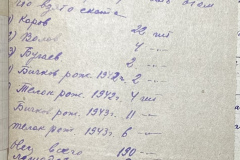 взято скота
1) Коров 22 шт
2) Волов 4 —
3) Бугаев 2 —
Бычков рож. 1942г. 2 —
Телок рож. 1942г. 4 шт
Бычков рож. 1943г. 11 —
телок рож. 1943г. 6 —
всего 190 —